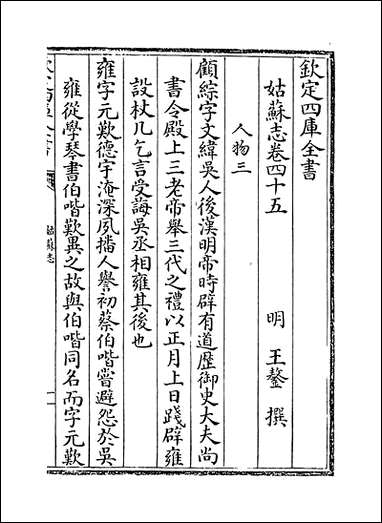 欽定四庫全書
姑蘇志卷四十五
明 王鏊 撰
人物三
顧綜字文緯吳人後漢明帝時辟有道歴御史大夫尚
書令殿上三老帝舉三代之禮以正月上日踐辟雍
設杖几乞言受誨吳丞相雍其後也
雍字元歎德宇淹深夙播人譽初蔡伯喈嘗避怨於吳
雍從學琴書伯喈歎異之故與伯喈同名而字元歎
姑蘇志
一